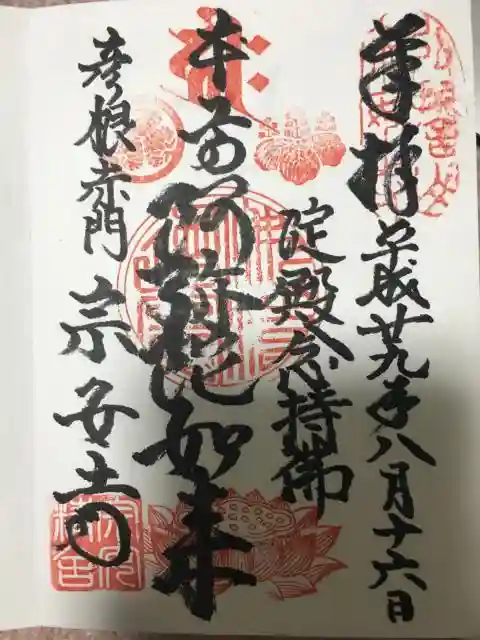 奉拝 平成廿九年八月十六日
淀殿念持佛
本尊阿弥陀如来
彦根赤門 宗安寺